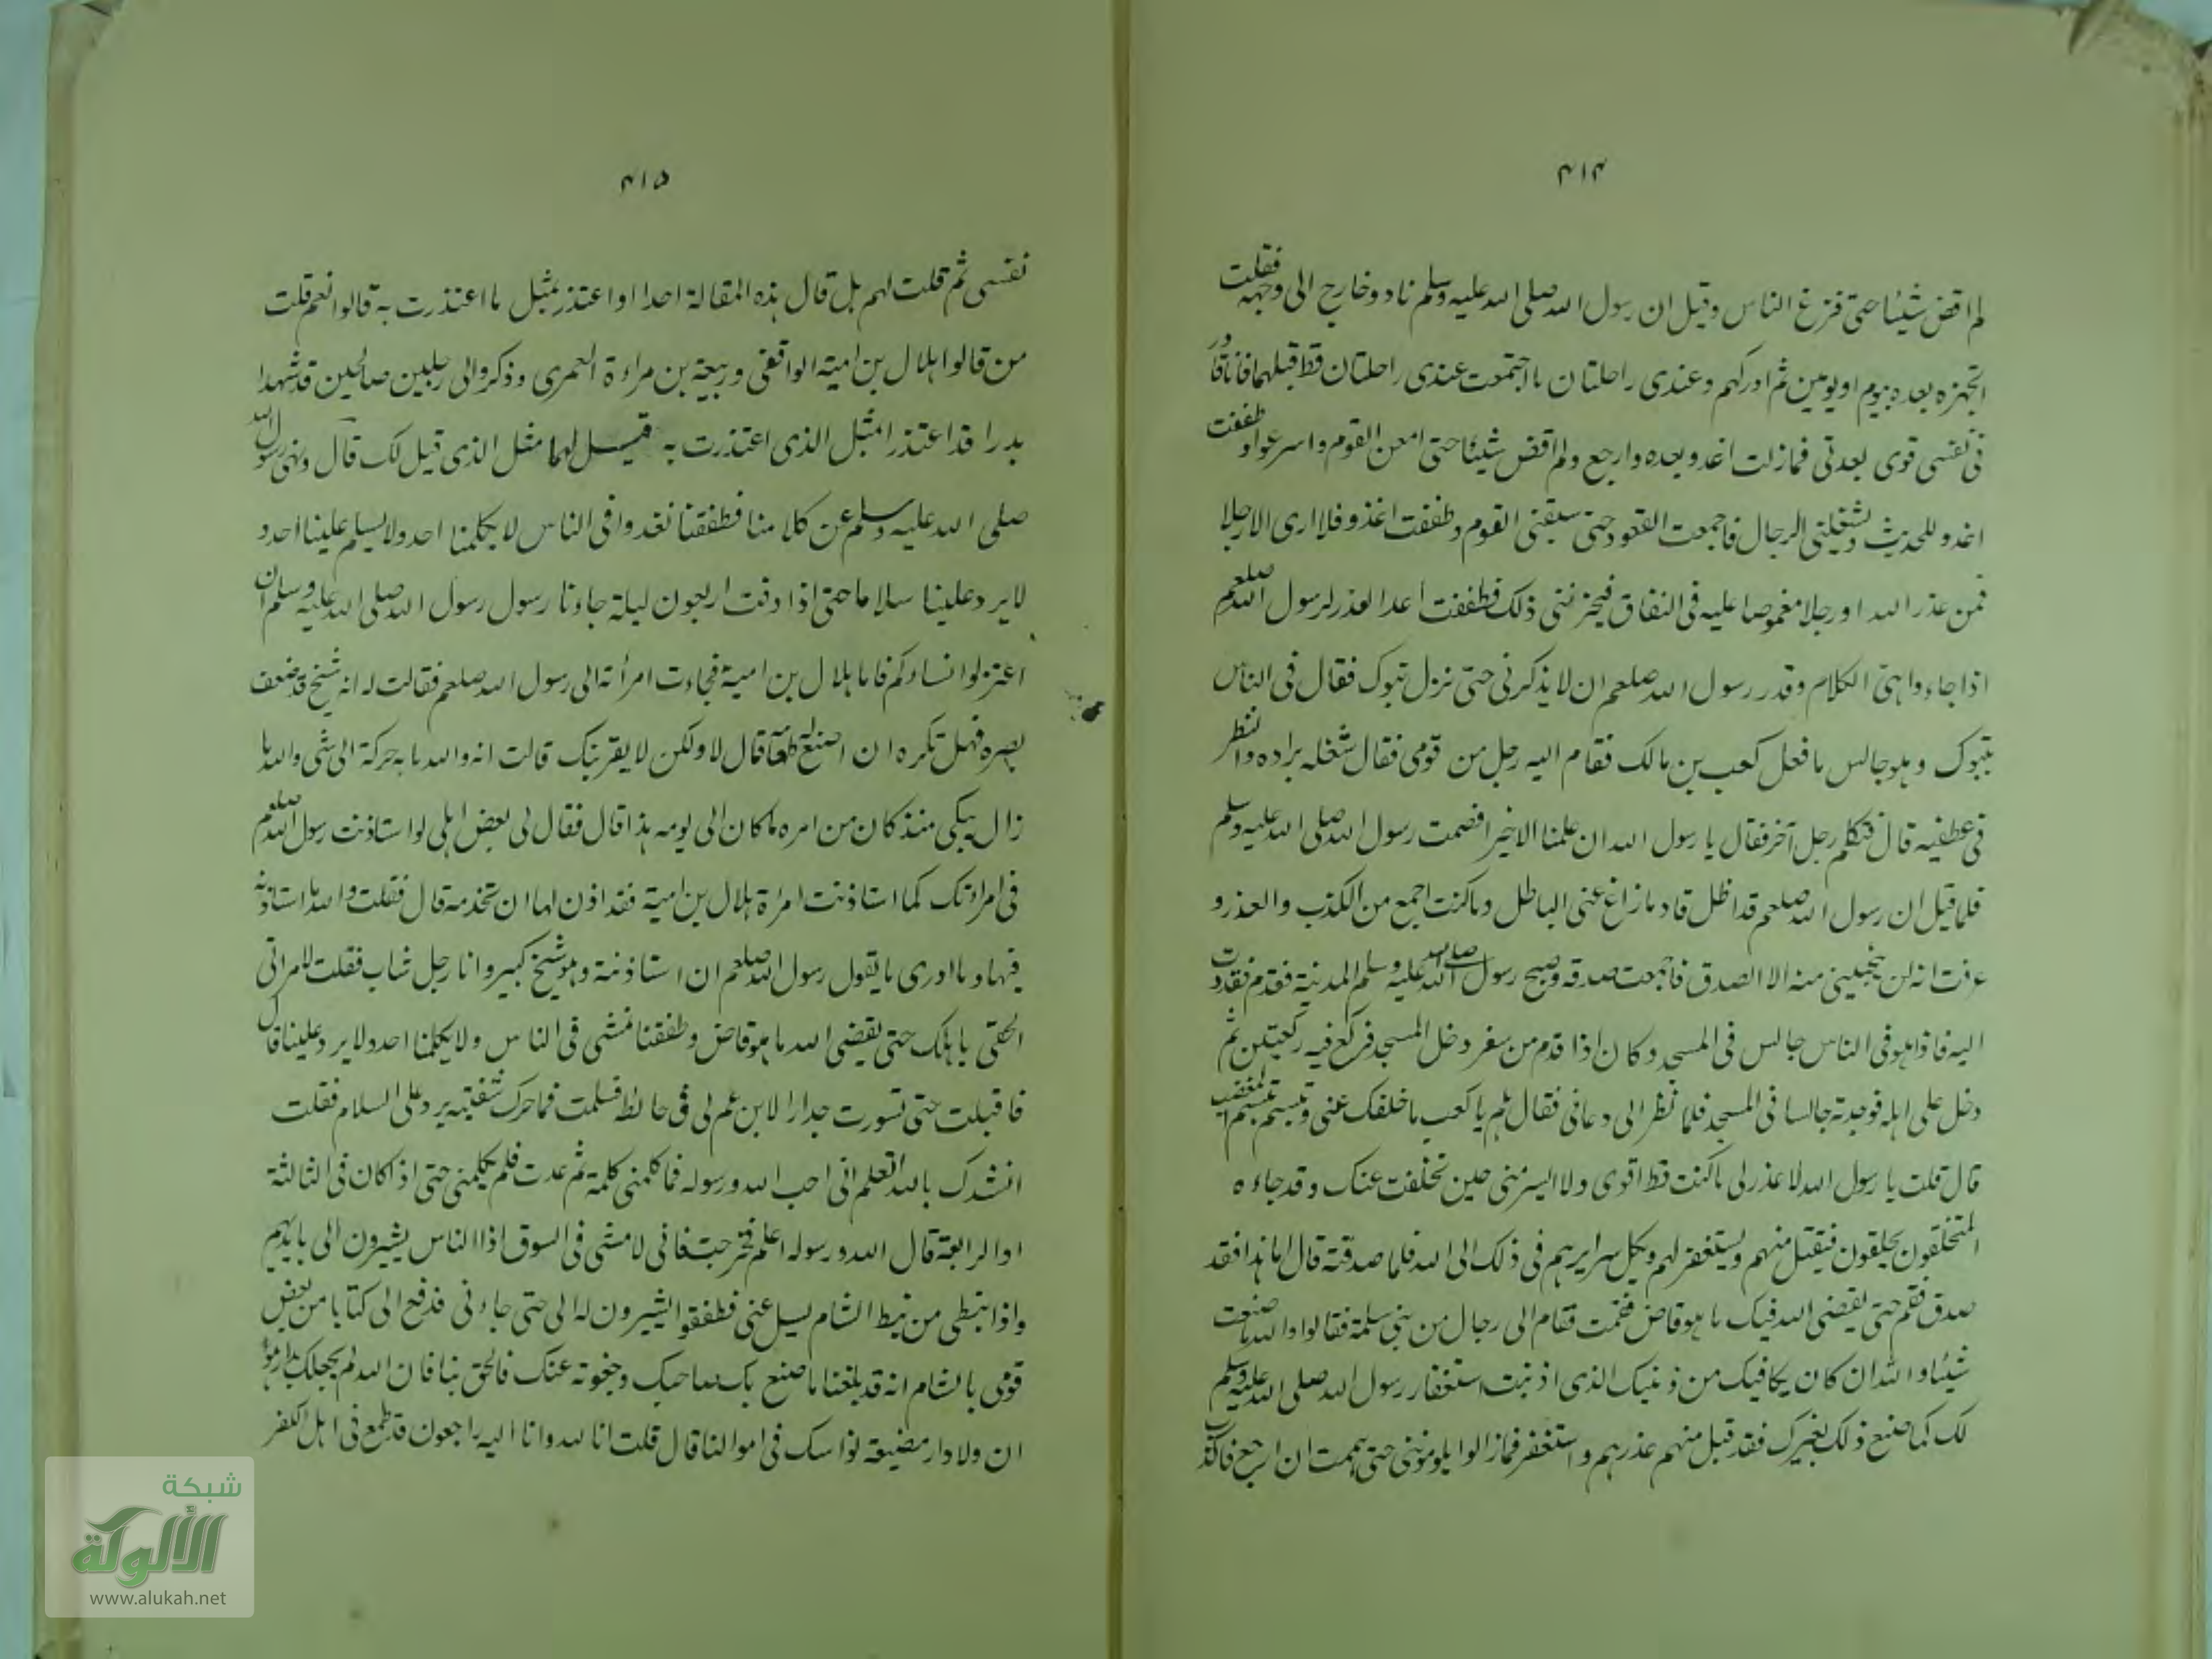 ۴۱۴
لم اقض شيئا حتى فزغ الناس وقيل ان رسول الله صلى الله عليه وسلم ناد وخارج الى وجهه فقلت
اتجهزه بعده بيوم او يومين ثم ادركهم وعندى راحلتان ما اجتمعت عندى راحلتان قط قبلهما فانا قادر
فى نفسى قوى بعدتى فمازلت اغد وبعده وارجع ولم اقض شيئا حتى امعن القوم واسرعوا وطفقت
اغدو للحديث وشغلنى الرجال فاجمعت القعود حتى سبقنى القوم وطفقت اغذو فلا ارى الا رجلا
فمن عذر الله او رجلا مغموصا عليه فى النفاق فيحزننى ذلك فطفقت اعد العذر لرسول الله صلعم
اذا جاء واهيئ الكلام وقدر رسول الله صلعم ان لا يذكرنى حتى نزل تبوك فقال فى الناس
بتبوك وهو جالس ما فعل كعب بن مالك فقام اليه رجل من قومى فقال شغله براده والنظر
فى عطفيه قال فتكلم رجل آخر فقال يا رسول الله ان علمنا الا خيرا فصمت رسول الله صلى الله عليه وسلم
فلما قيل ان رسول الله صلعم قد اظل قادما زاغ عنى الباطل وما كنت اجمع من الكذب والعذر و
عرفت انه لن ينجينى منه الا الصدق فاجمعت صدقه وصبح رسول الله صلى الله عليه وسلم المدينة فقدم فغدوت
اليه فاذا هو فى الناس جالس فى المسجد وكان اذا قدم من سفر دخل المسجد فركع فيه ركعتين ثم
دخل على اهله فوجدته جالسا فى المسجد فلما نظر الى دعانى فقال هلم يا كعب ما خلفك عنى وتبسم تبسم المغضب
قال قلت يا رسول الله لا عذر لى ما كنت قط اقوى ولا ايسر منى حين تخلفت عنك وقد جاءه
المتخلقون يحلقون فيقبل منهم ويستغفر لهم ويكل سرايرهم فى ذلك الى الله فلما صدقته قال اما هذا فقد
صدق فقم حتى يقضى الله فيك ما هو قاض فقمت فقام الى رجال من بنى سلمة فقالوا والله ما صنعت
شيئا والله ان كان يكافيك من ذنبك الذى اذنبت استغفار رسول الله صلى الله عليه وسلم
لك كما صنع ذلك بغيرك فقد قبل منهم عذرهم واستغفر فمازالوا يلوموننى حتى هممت ان ارجع فاكذب
۴۱۵
نفسى ثم قلت لهم بل قال هذه المقالة احدا او اعتذر بمثل ما اعتذرت به قالوا نعم قلت
من قالوا هلال بن امية الواقفى وربيعة بن مراءة العمرى وذكروا لى رجلين صالحين قد شهدا
بدرا قد اعتذرا مثل الذى اعتذرت به قيل لهما مثل الذى قيل لك قال ونهى رسول الله
صلى الله عليه وسلم عن كلامنا فطفقنا نغدوا فى الناس لا يكلمنا احد ولا يسلم علينا احد و
لا يرد علينا سلاما حتى اذا وفت اربعون ليلة جاءنا رسول رسول الله صلى الله عليه وسلم ان
اعتزلوا نساءكم فاما هلال بن امية فجاءت امرأته الى رسول الله صلعم فقالت له انه شيخ قد ضعف
بصره فهل تكره ان اصنع له طعامه قال لا ولكن لا يقربنك قالت انه والله ما به حركة الى شى والله ما
زال يبكى منذ كان من امره ما كان الى يومه هذا قال فقال لى بعض اهلى لو استاذنت رسول الله صلعم
فى امراءتك كما استاذنت امراة هلال بن امية فقد اذن لها ان تخدمه قال فقلت والله ما استاذنه
فيها وما ادرى ما يقول رسول الله صلعم ان استاذنته وهو شيخ كبير وانا رجل شاب فقلت لامراتى
الحقى باهلك حتى يقضى الله ما هو قاض وطفقنا نمشى فى الناس ولا يكلمنا احد ولا يرد علينا قال
فاقبلت حتى تسورت جدارا لابن عم لى فى حائط فسلمت فما حرك شفتيه يرد على السلام فقلت
انشدك بالله اتعلم انى احب الله ورسوله فما كلمنى كلمة ثم عدت فلم يكلمنى حتى اذا كان فى الثالثة
اوالرابعة قال الله ورسوله اعلم فخرجت فانى لامشى فى السوق اذا الناس يشيرون الى بايديهم
واذا نبطى من نبط الشام يسيل عنى فطفقوا يشيرون له الى حتى جاءنى فدفع الى كتابا من بعض
قومى بالشام انه قد بلغنا ما صنع بك صاحبك وجفوته عنك فالحق بنا فان الله لم يجعلك بدار
ان ولا دار مضيعة نواسك فى اموالنا قال قلت انا لله وانا اليه راجعون قد طمع فى اهل الكفر
شبكة
الألوكة
www.alukah.net